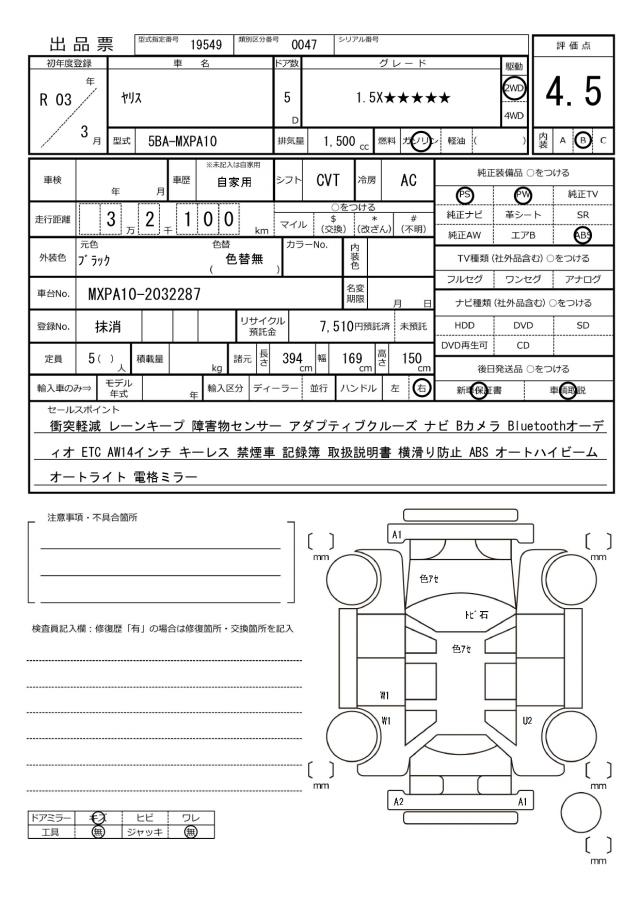 出品票 型式指定番号 19549 類別区分番号 0047 シリアル番号
評価点
初年度登録 車名 ドア数 グレード 駆動
R 03 年 ヤリス 5 D 1.5X★★★★★ 2WD 4.5
4WD
3 月 型式 5BA-MXPA10 排気量 1,500 cc 燃料 ガソリン 軽油 ( ) 内装 A B C
車検 年 月 車歴 ※未記入は自家用 自家用 シフト CVT 冷房 AC
走行距離 3 万 2 千 1 0 0 km ○をつける
マイル $ (交換) * (改ざん) # (不明)
外装色 元色 ブラック 色替 ( 色替無 ) カラーNo. 内装色
車台No. MXPA10-2032287 名変期限 月 日
登録No. 抹消 リサイクル預託金 7,510円預託済 未預託
定員 5 ( ) 人 積載量 kg 諸元 長さ 394 cm 幅 169 cm 高さ 150 cm
輸入車のみ⇒ モデル年式 年 輸入区分 ディーラー 並行 ハンドル 左 右
純正装備品 ○をつける
PS PW 純正TV
純正ナビ 革シート SR
純正AW エアB ABS
TV種類 (社外品含む) ○をつける
フルセグ ワンセグ アナログ
ナビ種類 (社外品含む) ○をつける
HDD DVD SD
DVD再生可 CD
後日発送品 ○をつける
新車保証書 車輌取説
セールスポイント
衝突軽減 レーンキープ 障害物センサー アダプティブクルーズ ナビ Bカメラ Bluetoothオーデ
ィオ ETC AW14インチ キーレス 禁煙車 記録簿 取扱説明書 横滑り防止 ABS オートハイビーム
オートライト 電格ミラー
注意事項・不具合箇所
検査員記入欄：修復歴「有」の場合は修復箇所・交換箇所を記入
ドアミラー キズ ヒビ ワレ
工具 無 ジャッキ 無
A1
mm mm
色アセ
トビ石
色アセ
W1
W1 U2
mm mm
A2 A1
mm